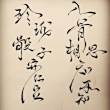 玲珑骰
子安红豆
入骨相
思知不知